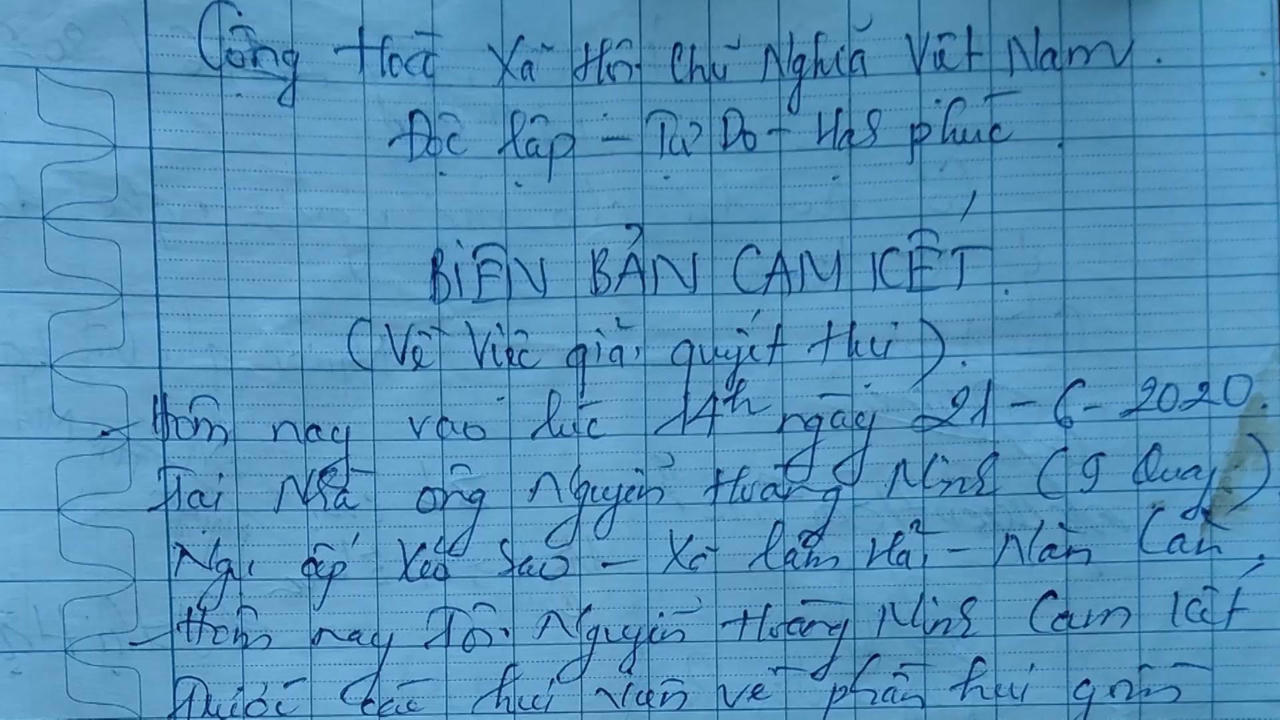 Cộng Hoà Xã Hội Chủ Nghĩa Việt Nam.
Độc lập - Tự Do - Hạnh phúc
BIÊN BẢN CAM KẾT
(Về Việc giải quyết hụi).
- Hôm nay vào lúc 14h ngày 21-6-2020.
Tại Nhà ông Nguyễn Hoàng Ninh (9 Quay)
Ngụ ấp Xẻo Sao - Xã Lâm Hải - Năm Căn.
- Hôm nay Tôi Nguyễn Hoàng Ninh Cam kết
Trước các hụi viên về phần hụi gồm